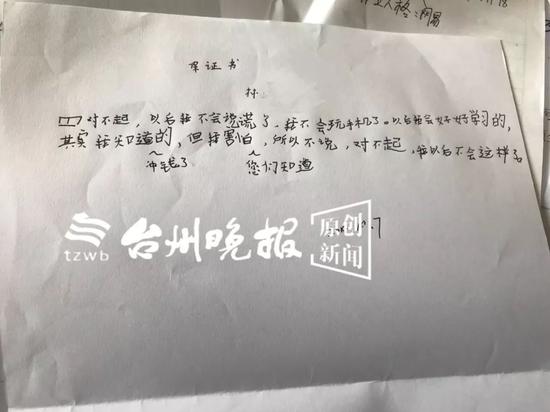 业人格:网易
保证书
对不起，以后我不会说谎了，我不会玩手机了。以后我会好好学习的，
其实我知道的，但我害怕，所以不说，对不起，我以后不会这样了
冲钱了
您们知道
台州晚报
tzwb
原创
新闻